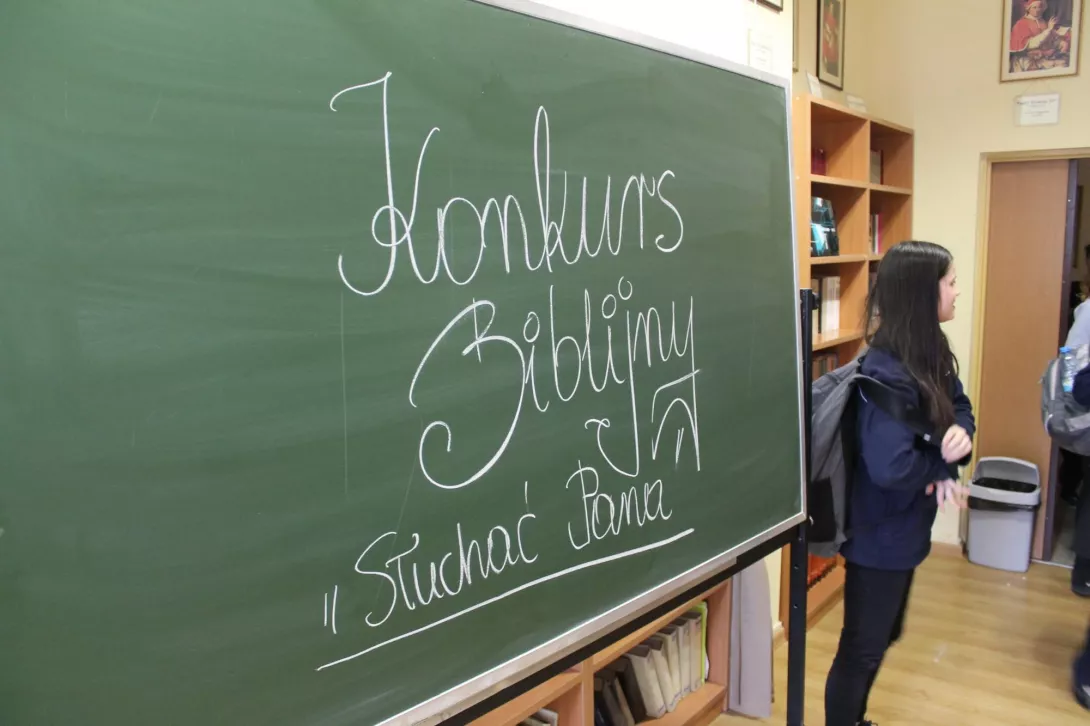 Konkurs
Biblijny
„Słuchać Pana